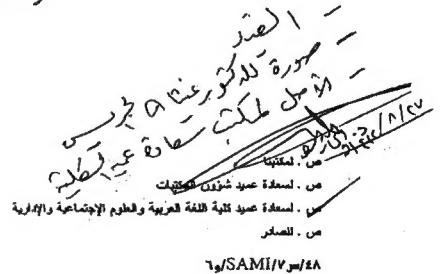 - الصادر
- صورة للدكتور
- الأصل لمكتب سعادة عميد الكلية
ص . لمكتبنا
ص . لسعادة عميد شؤون المكتبات
ص . لسعادة عميد كلية اللغة العربية والعلوم الإجتماعية والإدارية
ص . للصادر
٤٨/س٧/SAMI/و٦